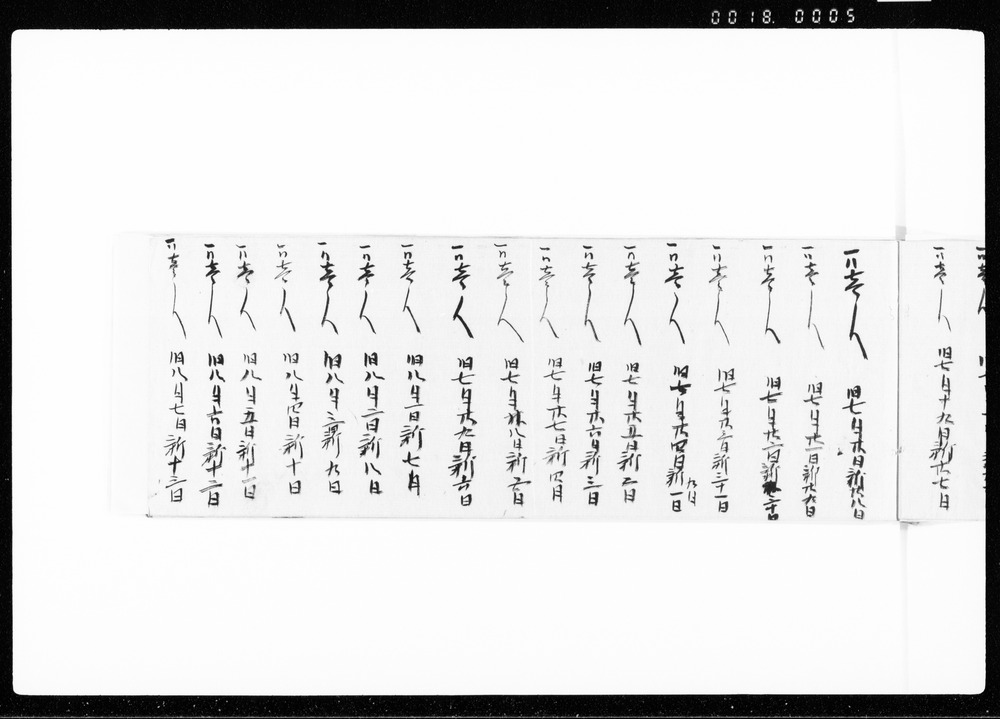 0018. 0005
一八壱人 旧七月十九日新廿七日
一八壱人 旧七月廿日新廿八日
一八壱人 旧七月廿一日新廿九日
一八壱人 旧七月廿二日新三十日
一八壱人 旧七月廿三日新三十一日
一八壱人 旧七月廿四日新九月一日
一八壱人 旧七月廿五日新二日
一八壱人 旧七月廿六日新三日
一八壱人 旧七月廿七日新四日
一八壱人 旧七月廿八日新五日
一八壱人 旧七月廿九日新六日
一八壱人 旧八月一日新七日
一八壱人 旧八月二日新八日
一八壱人 旧八月三日新九日
一八壱人 旧八月四日新十日
一八壱人 旧八月五日新十一日
一八壱人 旧八月六日新十二日
一八壱人 旧八月七日新十三日